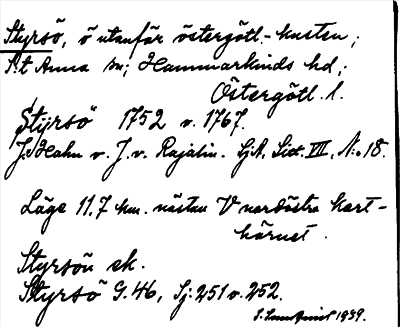 Styrsö, ö utanför östergötl.-kusten;
S:t Anna sn; Hammarkinds hd;
Östergötl. l.
Styrsö 1752 o. 1767.
J. Hahn o. J. v. Rajalin. SjA, Sidt. VII, N:o 18.
Läge 11.7 km. nästan V nordöstra kart-
hörnet.
Styrsön ek.
Styrsö G. 46, Sj: 251 o. 252.
1939.